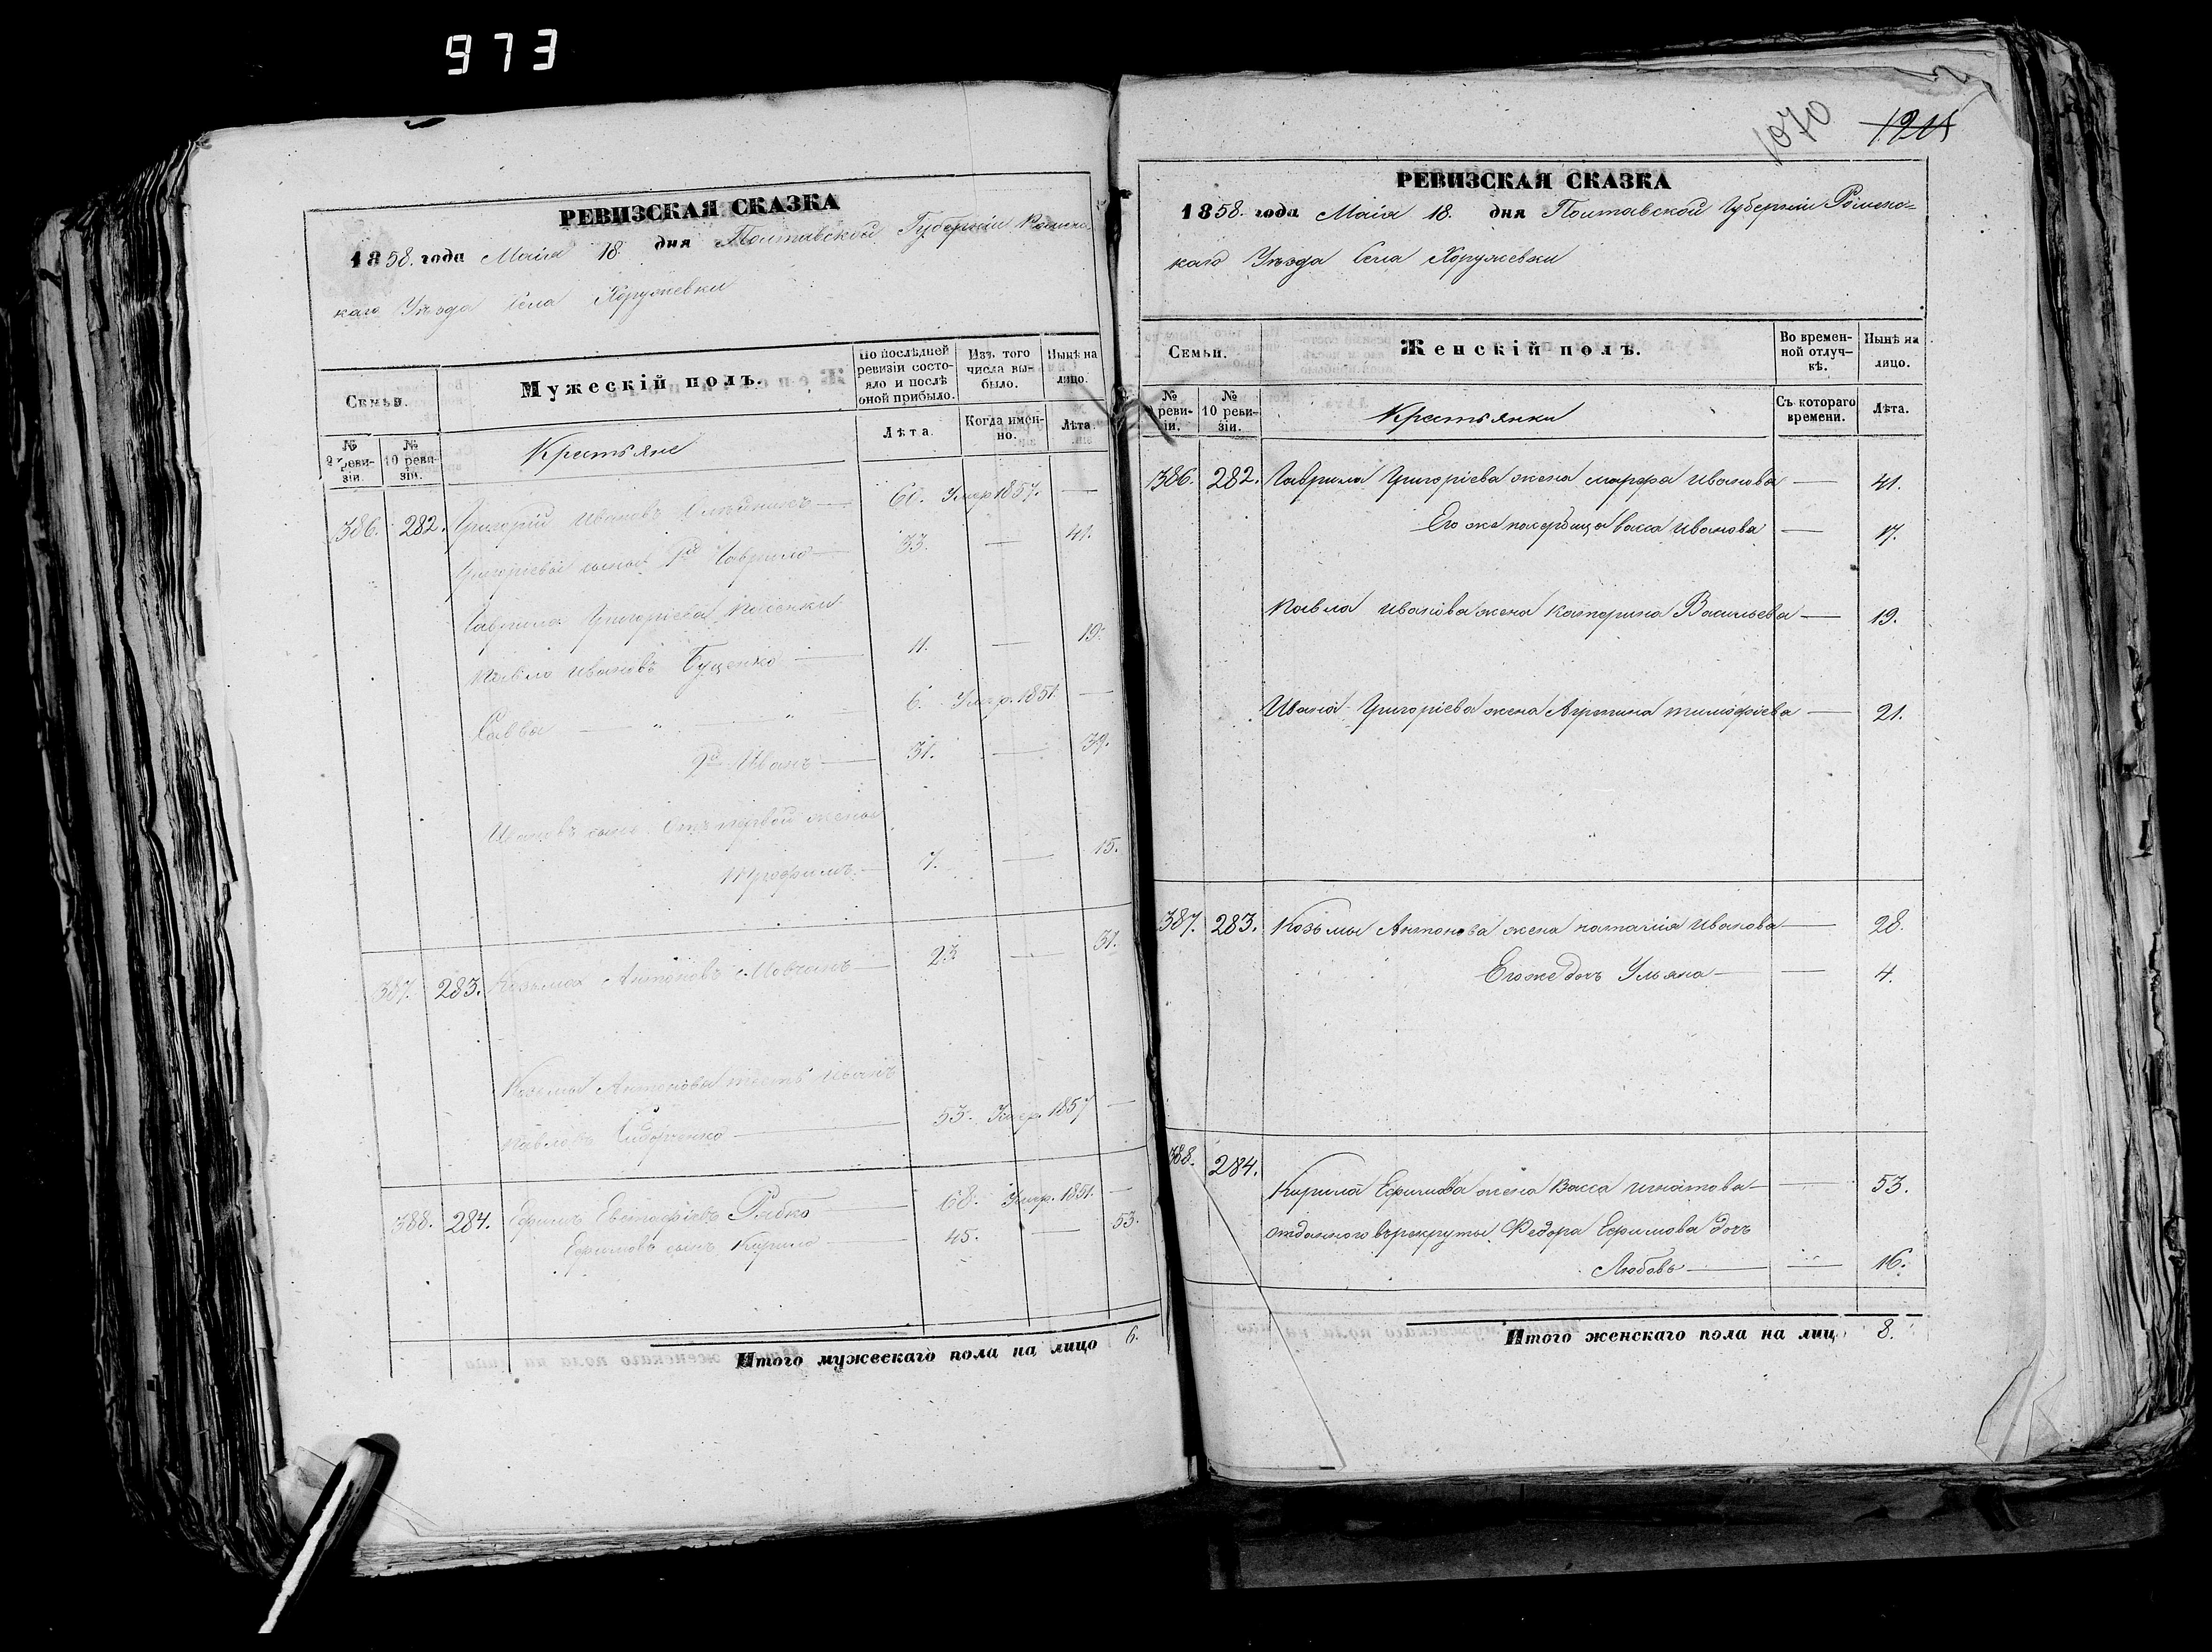 973
РЕВИЗСКАЯ СКАЗКА
1858. года Маія 18. дня Полтавской Губерніи Роменс-
каго Уѣзда Села Хоружевки
Семьи.
Мужескій полъ.
По послѣдней ревизіи состояло и послѣ оной прибыло.
Изъ того числа выбыло.
Нынѣ на лицо.
№ 9 ревизіи.
№ 10 ревизіи.
Крестьяне
Лѣта.
Когда именно.
Лѣта.
386. 282. Григорій Ивановъ — 60. Умер. 1857. —
Григоріевы сыны 1й Гаврило — 33. — 41.
Гаврила Григоріева пасынки
Павло Ивановъ Буценко — 11. — 19.
Савва — " " — 6. Умер. 1851. —
2й Иванъ — 31. — 39.
Ивановъ сынъ отъ первой жены
Трофимъ — 7. — 15.
387. 283. Козьма Антоновъ Мовчанъ — 23. — 31.
Козьмы Антонова тесть Иванъ
Павловъ Сидоренко — 53. Умер. 1857 —
388. 284. Ефимъ Евстафіевъ Рябко 68. Умер. 1851. —
Ефимовъ сынъ Кирило — 45. — 53.
Итого мужескаго пола на лицо 6.
1070 1215
РЕВИЗСКАЯ СКАЗКА
1858. года Маія 18. дня Полтавской Губерніи Роменс-
каго Уѣзда Села Хоружевки
Семьи.
Женскій полъ.
Во временной отлучкѣ.
Нынѣ на лицо.
№ ревизіи.
№ 10 ревизіи.
Крестьянки
Съ котораго времени.
Лѣта.
386. 282. Гаврила Григоріева жена Марфа Иванова — 41.
Его же падчерица Васса Иванова — 17.
Павла Иванова жена Катерина Васильева — 19.
Ивана Григоріева жена Агрипина Тимофіева — 21.
387. 283. Козьмы Антонова жена Наталія Иванова — 28.
Его же дочь Ульяна — — 4.
388. 284. Кирила Ефимова жена Васса Игнатова — — 53.
отданного въ рекруты Федора Ефимова дочь
Любовь — — 16.
Итого женскаго пола на лиц 8.